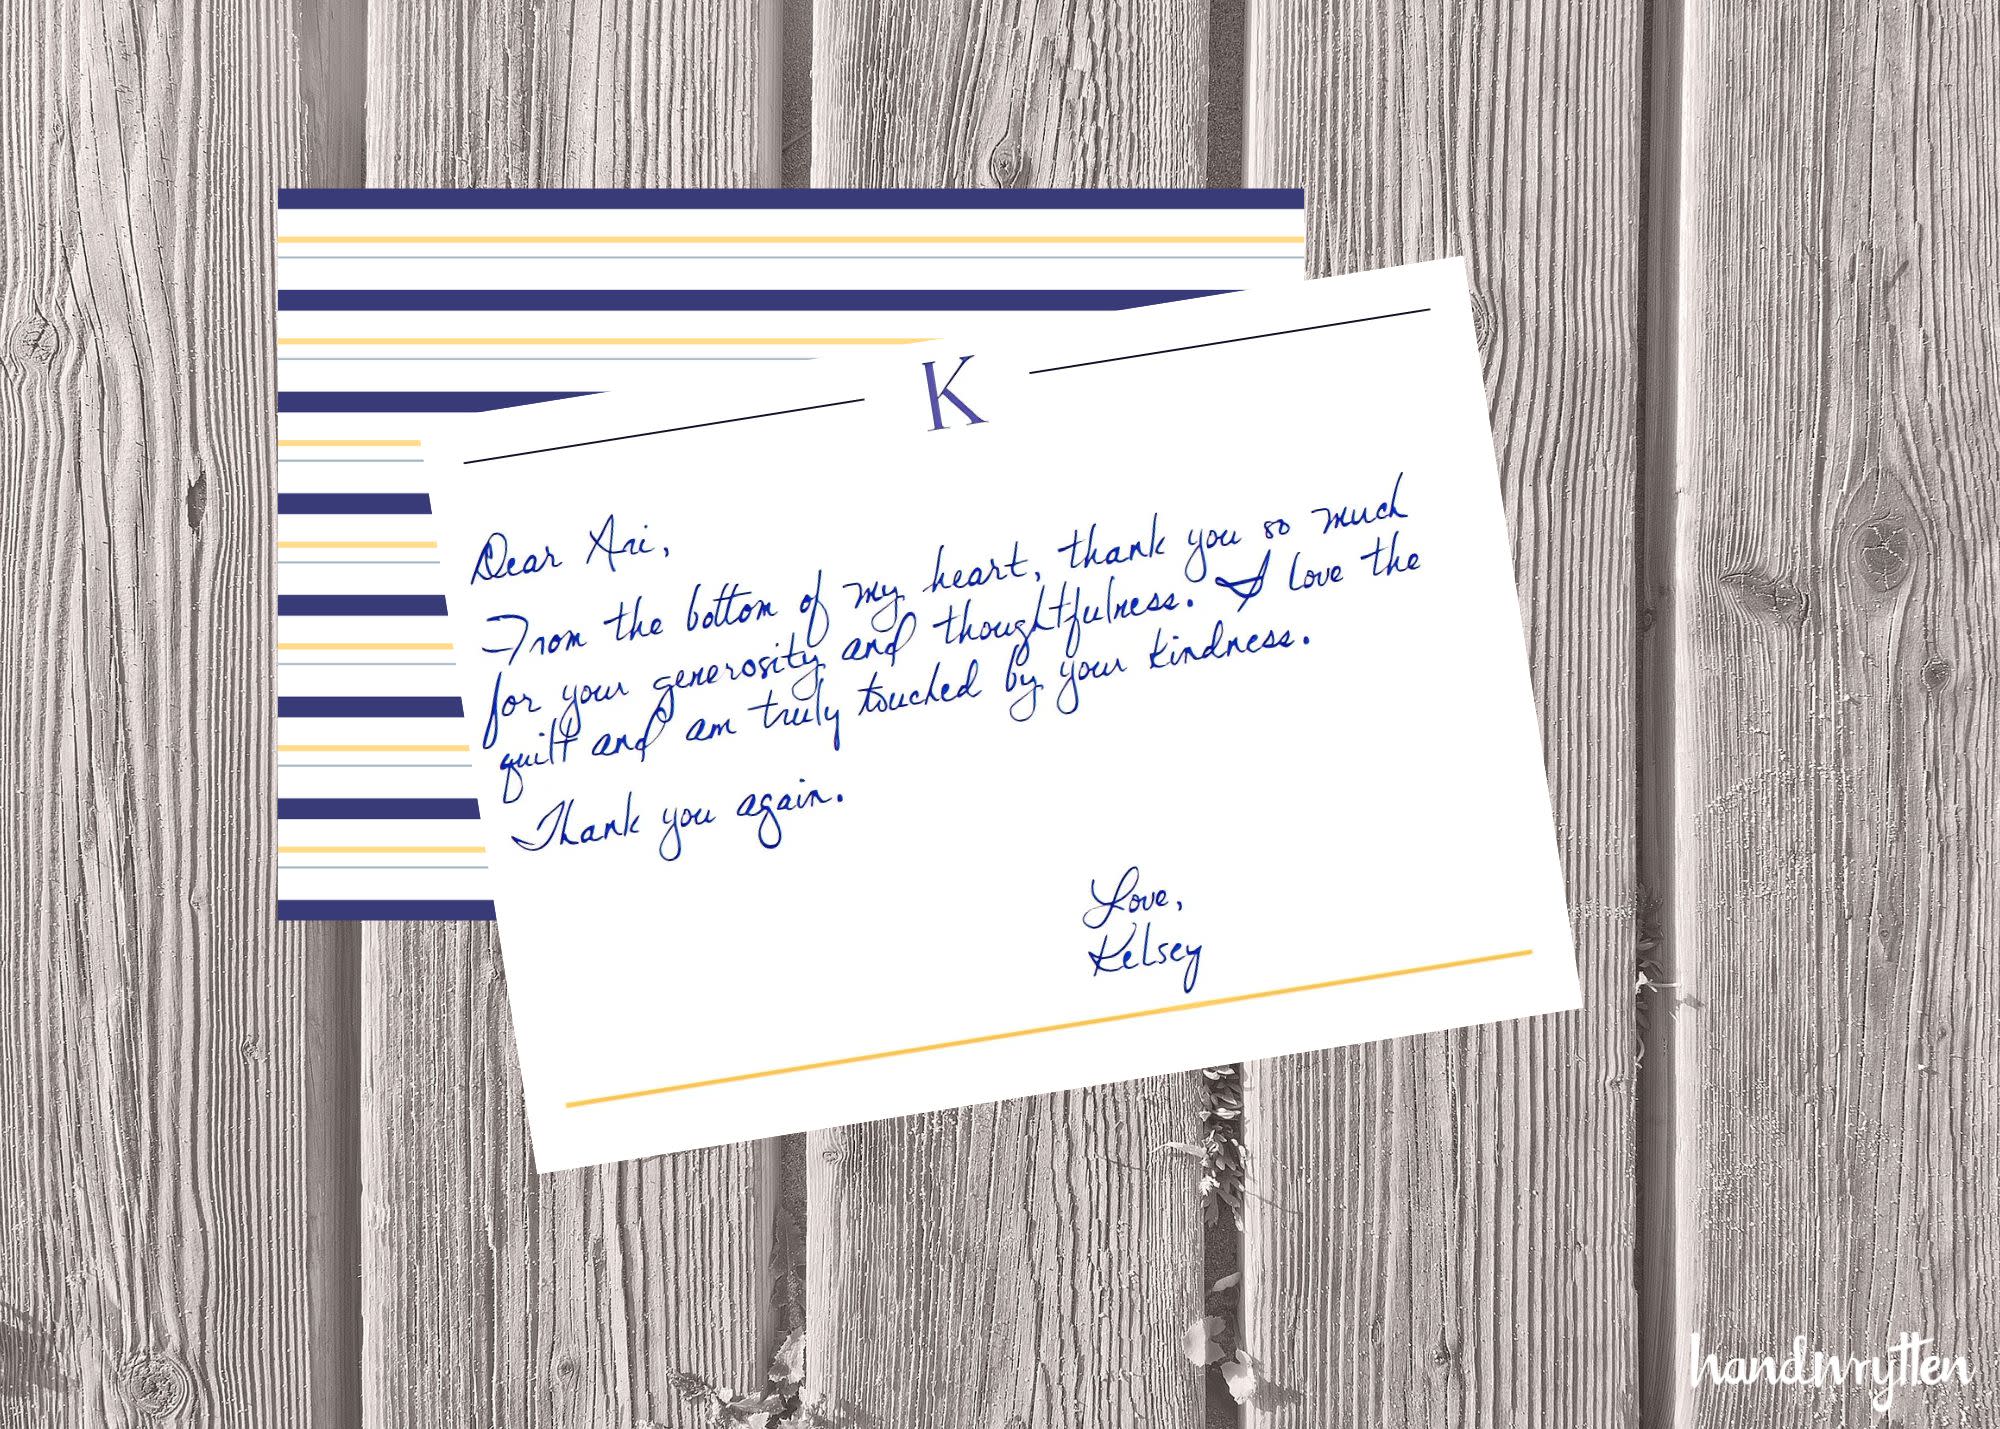 K
Dear Ari,
From the bottom of my heart, thank you so much
for your generosity and thoughtfulness. I love the
quilt and am truly touched by your kindness.
Thank you again.
Love,
Kelsey
handwrytten